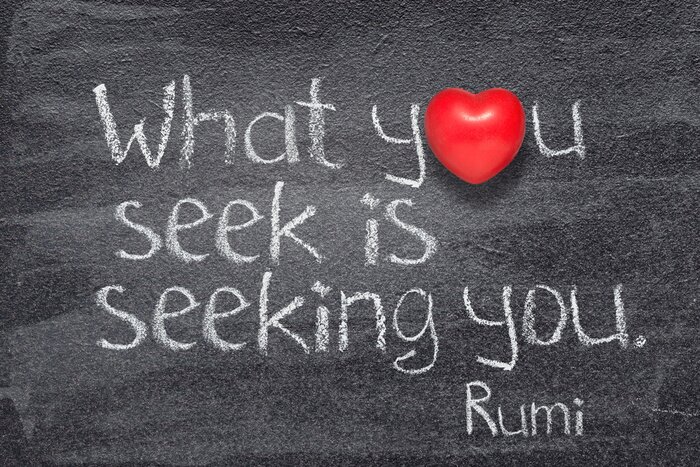 What you
seek is
seeking you.
Rumi